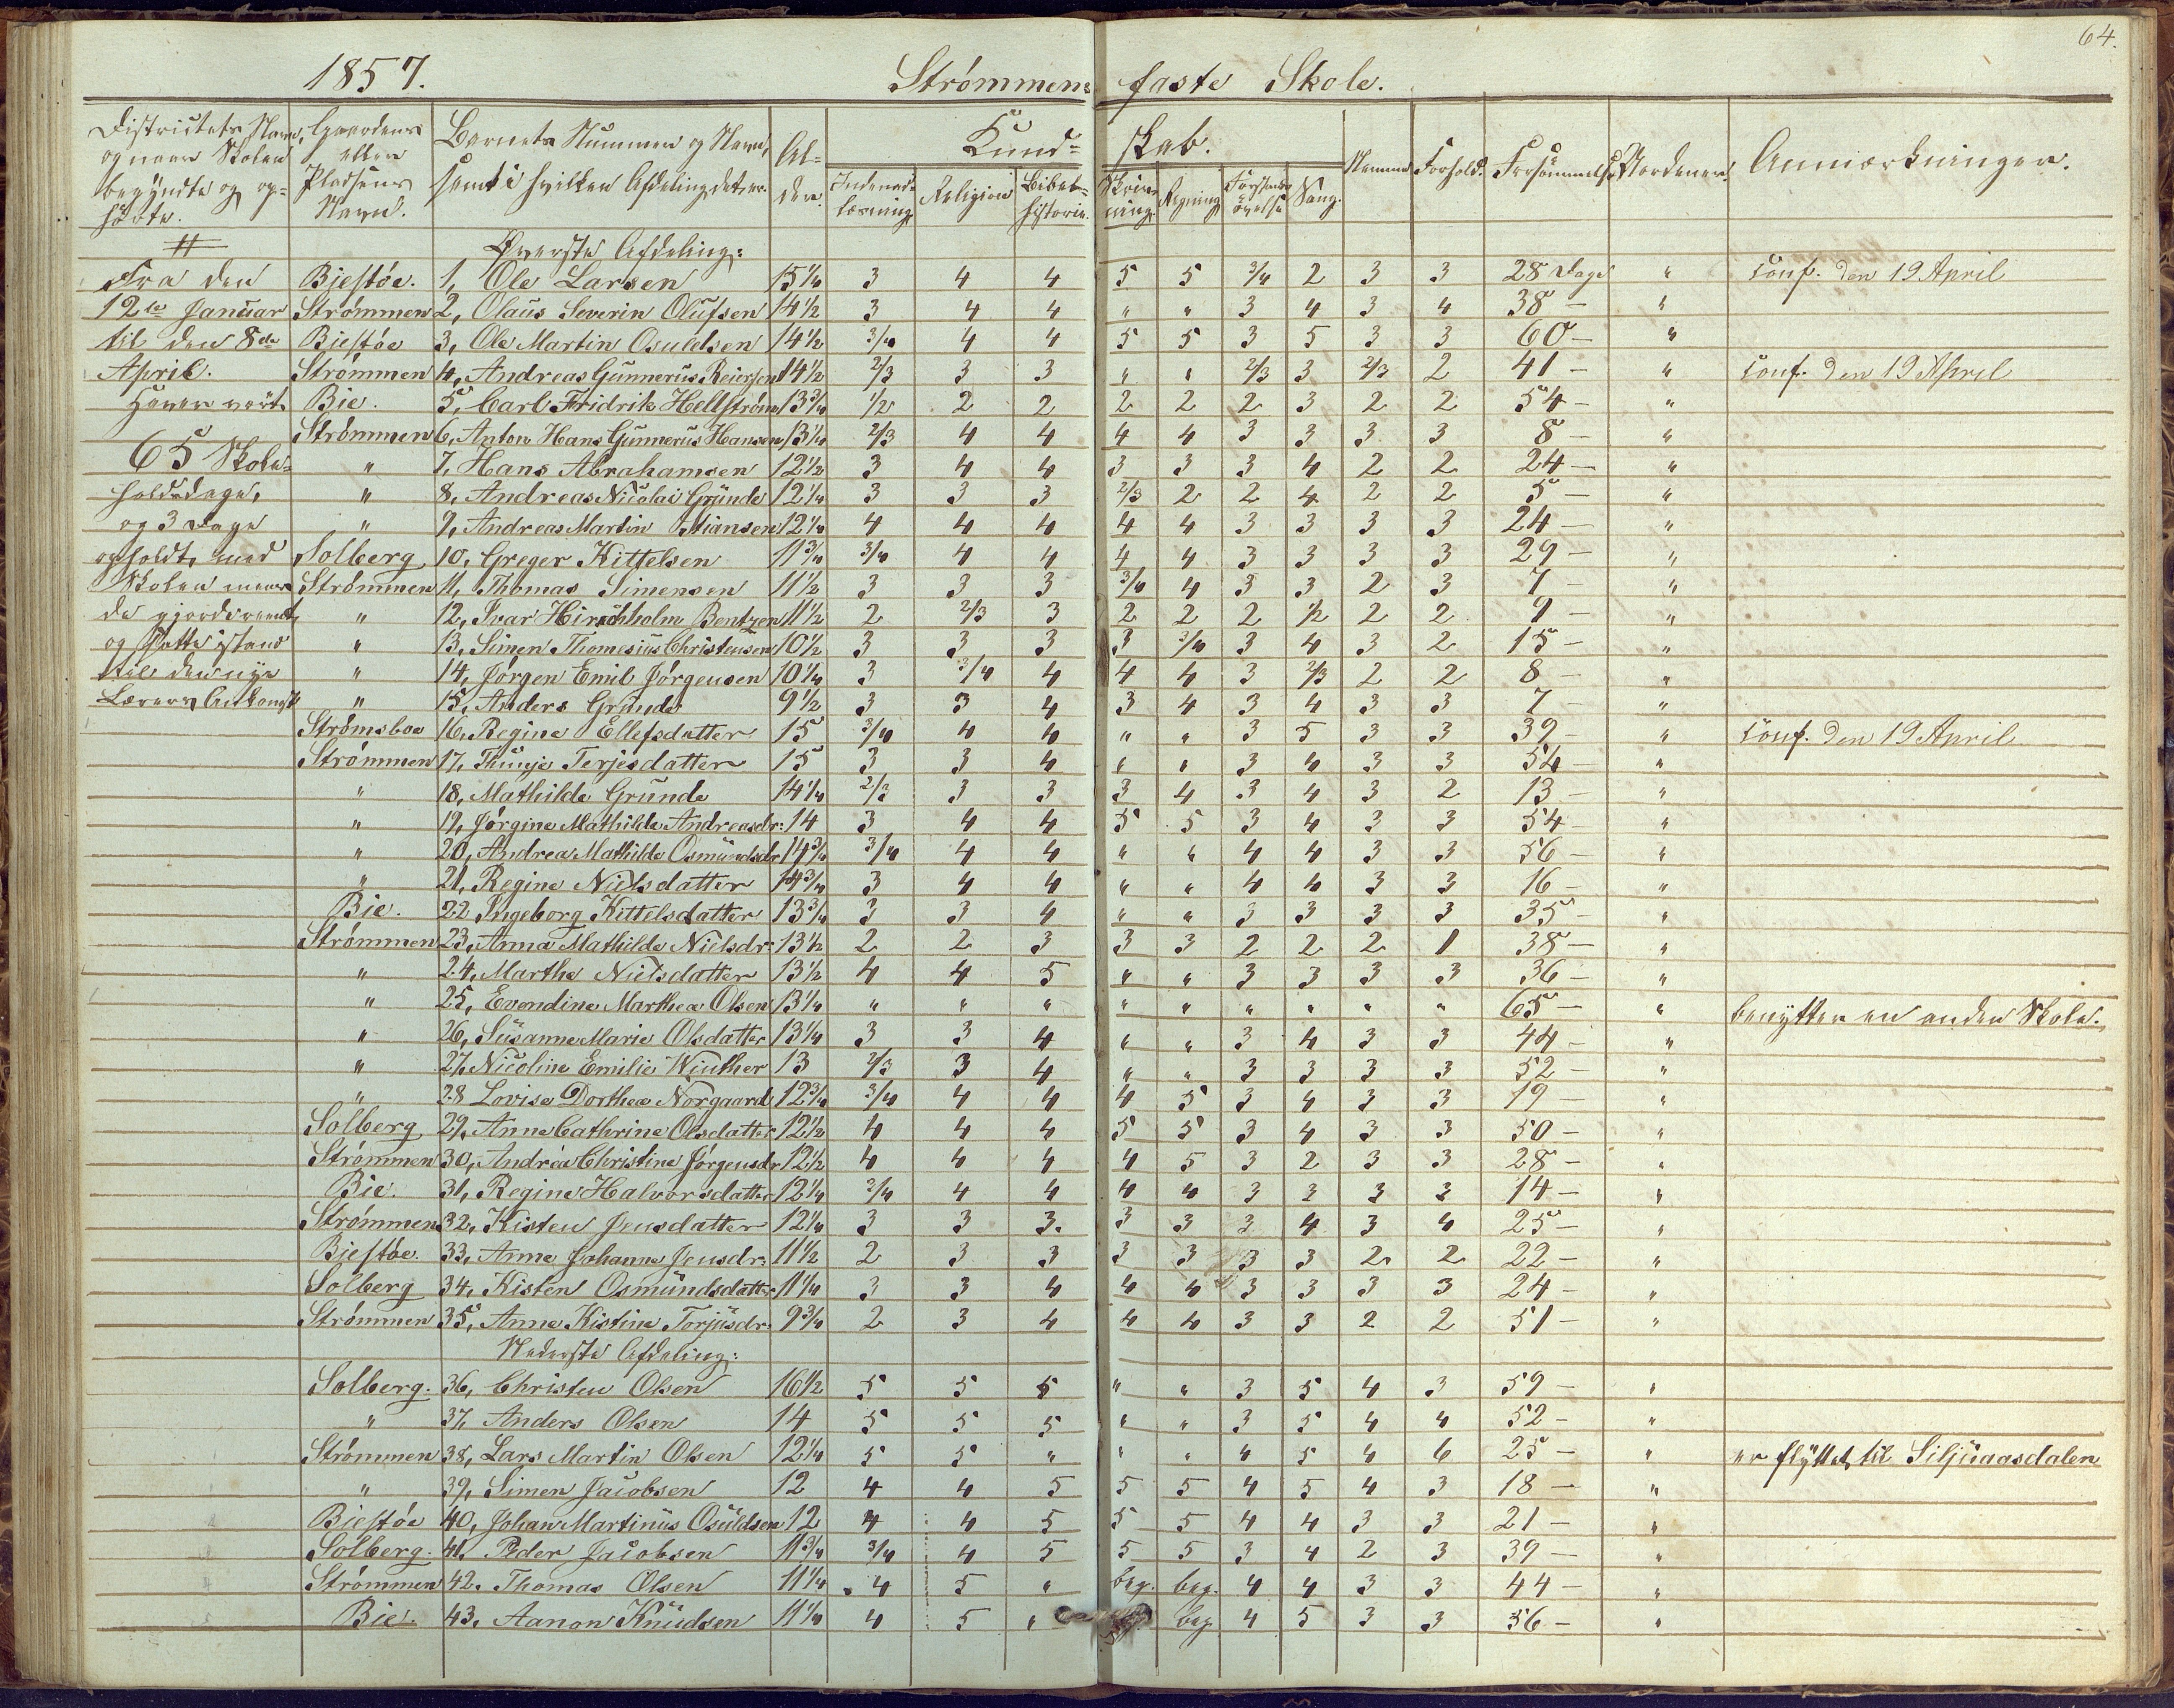 64.
1857. Strømmens faste Skole.
Districtets Navn, og naar Skolen begyndte og ophørte. | Gaardens eller Pladsens Navn. | Barnets Nummer og Navn, samt i hvilken Afdeling det er. | Alder. | Kundskab. Indenadlæsning | Religion | Bibelhistorie. | Skrivning. | Regning | Forstandsøvelse | Sang. | Nemme | Forhold. | Forsømmelse | Vordenen | Anmærkninger.
Øverste Afdeling:
Fra den | Biestöe. | 1, Ole Larsen | 15 1/4 | 3 | 4 | 4 | 5 | 5 | 3/4 | 2 | 3 | 3 | 28 Dage | " | Conf. den 19 April
12te Januar | Strömmen | 2, Olaus Severin Olufsen | 14 1/2 | 3 | 4 | 4 | " | " | 3 | 4 | 3 | 4 | 38 – | "
til den 8de | Biestöe | 3, Ole Martin Osuldsen | 14 1/2 | 3/4 | 4 | 4 | 5 | 5 | 3 | 5 | 3 | 3 | 60 – | "
April. | Strömmen | 4, Andreas Gunnerius Reiersen | 14 1/2 | 2/3 | 3 | 3 | " | " | 2/3 | 3 | 2/3 | 2 | 41 – | " | Conf. den 19 April
Haver vært | Bie. | 5, Carl Fridrik Hellström | 13 3/4 | 1/2 | 2 | 2 | 2 | 2 | 2 | 3 | 2 | 2 | 54 – | "
Strömmen | 6, Anton Hans Gunnerus Hansen | 13 1/4 | 2/3 | 4 | 4 | 4 | 4 | 3 | 3 | 3 | 3 | 8 – | "
65 Skole- | " | 7, Hans Abrahamsen | 12 1/2 | 3 | 4 | 4 | 3 | 3 | 3 | 4 | 2 | 2 | 24 – | "
holdsdage, | " | 8, Andreas Nicolai Grunde | 12 1/4 | 3 | 3 | 3 | 2/3 | 2 | 2 | 4 | 2 | 2 | 5 – | "
og 3 Dage | " | 9, Andreas Martin Stiansen | 12 1/4 | 4 | 4 | 4 | 4 | 4 | 3 | 3 | 3 | 3 | 24 – | "
opholdt, med | Solberg | 10, Greger Kittelsen | 11 3/4 | 3/4 | 4 | 4 | 4 | 4 | 3 | 3 | 3 | 3 | 29 – | "
Skolen | Strömmen | 11, Thomas Simensen | 11 1/2 | 3 | 3 | 3 | 3/4 | 4 | 3 | 3 | 2 | 3 | 7 – | "
de gjordes reent, | " | 12, Ivar Hirschholm Bentzen | 11 1/2 | 2 | 2/3 | 3 | 2 | 2 | 2 | 1/2 | 2 | 2 | 9 – | "
og satte istand | " | 13, Simen Thomesius Christensen | 10 1/2 | 3 | 3 | 3 | 3 | 3/4 | 3 | 4 | 3 | 2 | 15 – | "
til den nye | " | 14, Jörgen Emil Jörgensen | 10 1/4 | 3 | 3/4 | 4 | 4 | 4 | 3 | 2/3 | 2 | 2 | 8 – | "
Lærers Ankomst | " | 15, Anders Grunde | 9 1/2 | 3 | 3 | 4 | 3 | 4 | 3 | 4 | 3 | 3 | 7 – | "
Strömsboe | 16, Regine Ellefsdatter | 15 | 3/4 | 4 | 4 | " | " | 3 | 5 | 3 | 3 | 39 – | " | Conf. den 19 April
Strömmen | 17, Thunje Terjesdatter | 15 | 3 | 3 | 4 | " | " | 3 | 4 | 3 | 3 | 54 – | "
" | 18, Mathilde Grunde | 14 1/4 | 2/3 | 3 | 3 | 3 | 4 | 3 | 4 | 3 | 2 | 13 – | "
" | 19, Jörgine Mathilde Andreasdr: | 14 | 3 | 4 | 4 | 5 | 5 | 3 | 4 | 3 | 3 | 54 – | "
" | 20, Andrea Mathilde Osmundsdr | 14 3/4 | 3/4 | 4 | 4 | " | " | 4 | 4 | 3 | 3 | 56 – | "
" | 21, Regine Nielsdatter | 14 3/4 | 3 | 4 | 4 | " | " | 4 | 4 | 3 | 3 | 16 – | "
Bie. | 22 Ingeborg Kittelsdatter | 13 3/4 | 3 | 3 | 4 | " | " | 3 | 3 | 3 | 3 | 35 – | "
Strömmen | 23, Anna Mathilde Nielsdr: | 13 1/2 | 2 | 2 | 3 | 3 | 3 | 2 | 2 | 2 | 1 | 38 – | "
" | 24, Marthe Nielsdatter | 13 1/2 | 4 | 4 | 5 | " | " | 3 | 3 | 3 | 3 | 36 – | "
" | 25, Evendine Marthea Olsen | 13 1/4 | " | " | " | " | " | " | " | " | " | 65 – | " | benytter en anden Skole.
" | 26, Susanne Marie Olsdatter | 13 1/4 | 3 | 3 | 4 | " | " | 3 | 4 | 3 | 3 | 44 – | "
" | 27, Nicoline Emilie Winther | 13 | 2/3 | 3 | 4 | " | " | 3 | 3 | 3 | 3 | 52 – | "
" | 28 Lovise Dorthea Norgaard | 12 3/4 | 3/4 | 4 | 4 | 4 | 5 | 3 | 4 | 3 | 3 | 19 | "
Solberg | 29, Anne Cathrine Olsdatter | 12 1/2 | 4 | 4 | 4 | 5 | 5 | 3 | 4 | 3 | 3 | 50 – | "
Strömmen | 30, Andrea Christine Jörgensdr | 12 1/2 | 4 | 4 | 4 | 4 | 5 | 3 | 2 | 3 | 3 | 28 – | "
Bie. | 31, Regine Halvorsdatter | 12 1/4 | 3/4 | 4 | 4 | 4 | 4 | 3 | 3 | 3 | 3 | 14 – | "
Strömmen | 32, Kisten Jensdatter | 12 1/4 | 3 | 3 | 3. | 3 | 3 | 3 | 4 | 3 | 4 | 25 – | "
Biestöe. | 33, Anne Johanne Jensdr: | 11 1/2 | 2 | 3 | 3 | 3 | 3 | 3 | 3 | 2 | 2 | 22 – | "
Solberg | 34, Kisten Osmundsdatter | 11 1/4 | 3 | 3 | 4 | 4 | 4 | 3 | 3 | 3 | 3 | 24 – | "
Strömmen | 35, Anne Kistine Torjusdr: | 9 3/4 | 2 | 3 | 4 | 4 | 4 | 3 | 3 | 2 | 2 | 51 – | "
Nederste Afdeling:
Solberg. | 36, Christen Olsen | 16 1/2 | 5 | 5 | 5 | " | " | 3 | 5 | 4 | 3 | 59 – | "
" | 37, Anders Olsen | 14 | 5 | 5 | 5 | " | " | 3 | 5 | 4 | 4 | 52 – | "
Strömmen | 38, Lars Martin Olsen | 12 1/4 | 5 | 5 | " | " | " | 4 | 5 | 4 | 6 | 25 – | " | er flyttet til Siljuaasdalen
" | 39, Simen Jacobsen | 12 | 4 | 4 | 5 | 5 | 5 | 4 | 5 | 4 | 3 | 18 – | "
Biestöe | 40, Johan Martinus Osuldsen | 12 | 4 | 4 | 5 | 5 | 5 | 4 | 4 | 3 | 3 | 21 – | "
Solberg. | 41, Peder Jacobsen | 11 3/4 | 3/4 | 4 | 5 | 5 | 5 | 3 | 4 | 2 | 3 | 39 – | "
Strömmen | 42. Thomas Olsen | 11 1/4 | 4 | 5 | " | beg. | beg. | 4 | 4 | 3 | 3 | 44 – | "
Bie. | 43, Aanon Knudsen | 11 1/4 | 4 | 5 | " | beg | 4 | 5 | 3 | 3 | 36 – | "